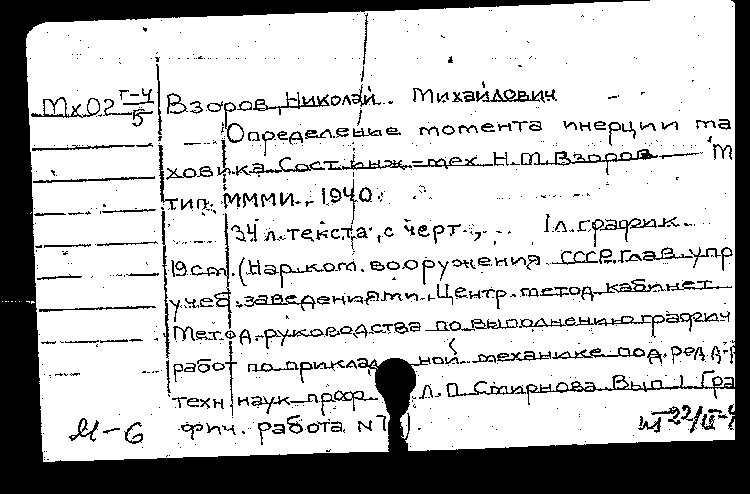 Мх02 Г-4/5 Взоров, Николай Михайлович
Определение момента инерции ма
ховика Сост. инж.-мех. Н.М. Взоров М
тип. МММИ, 1940.
34 л. текста, с черт., 1 л. график.
19 cm. (Нар. ком. вооружения СССР. Глав. упр
учеб. заведениями. Центр. метод. кабинет
Метод. руководства по выполнению графич
работ по приклад ной механике под. ред. д-р
техн наук проф. Л.П. Смирнова Вып 1 Гра
фич. работа N7).
М-6